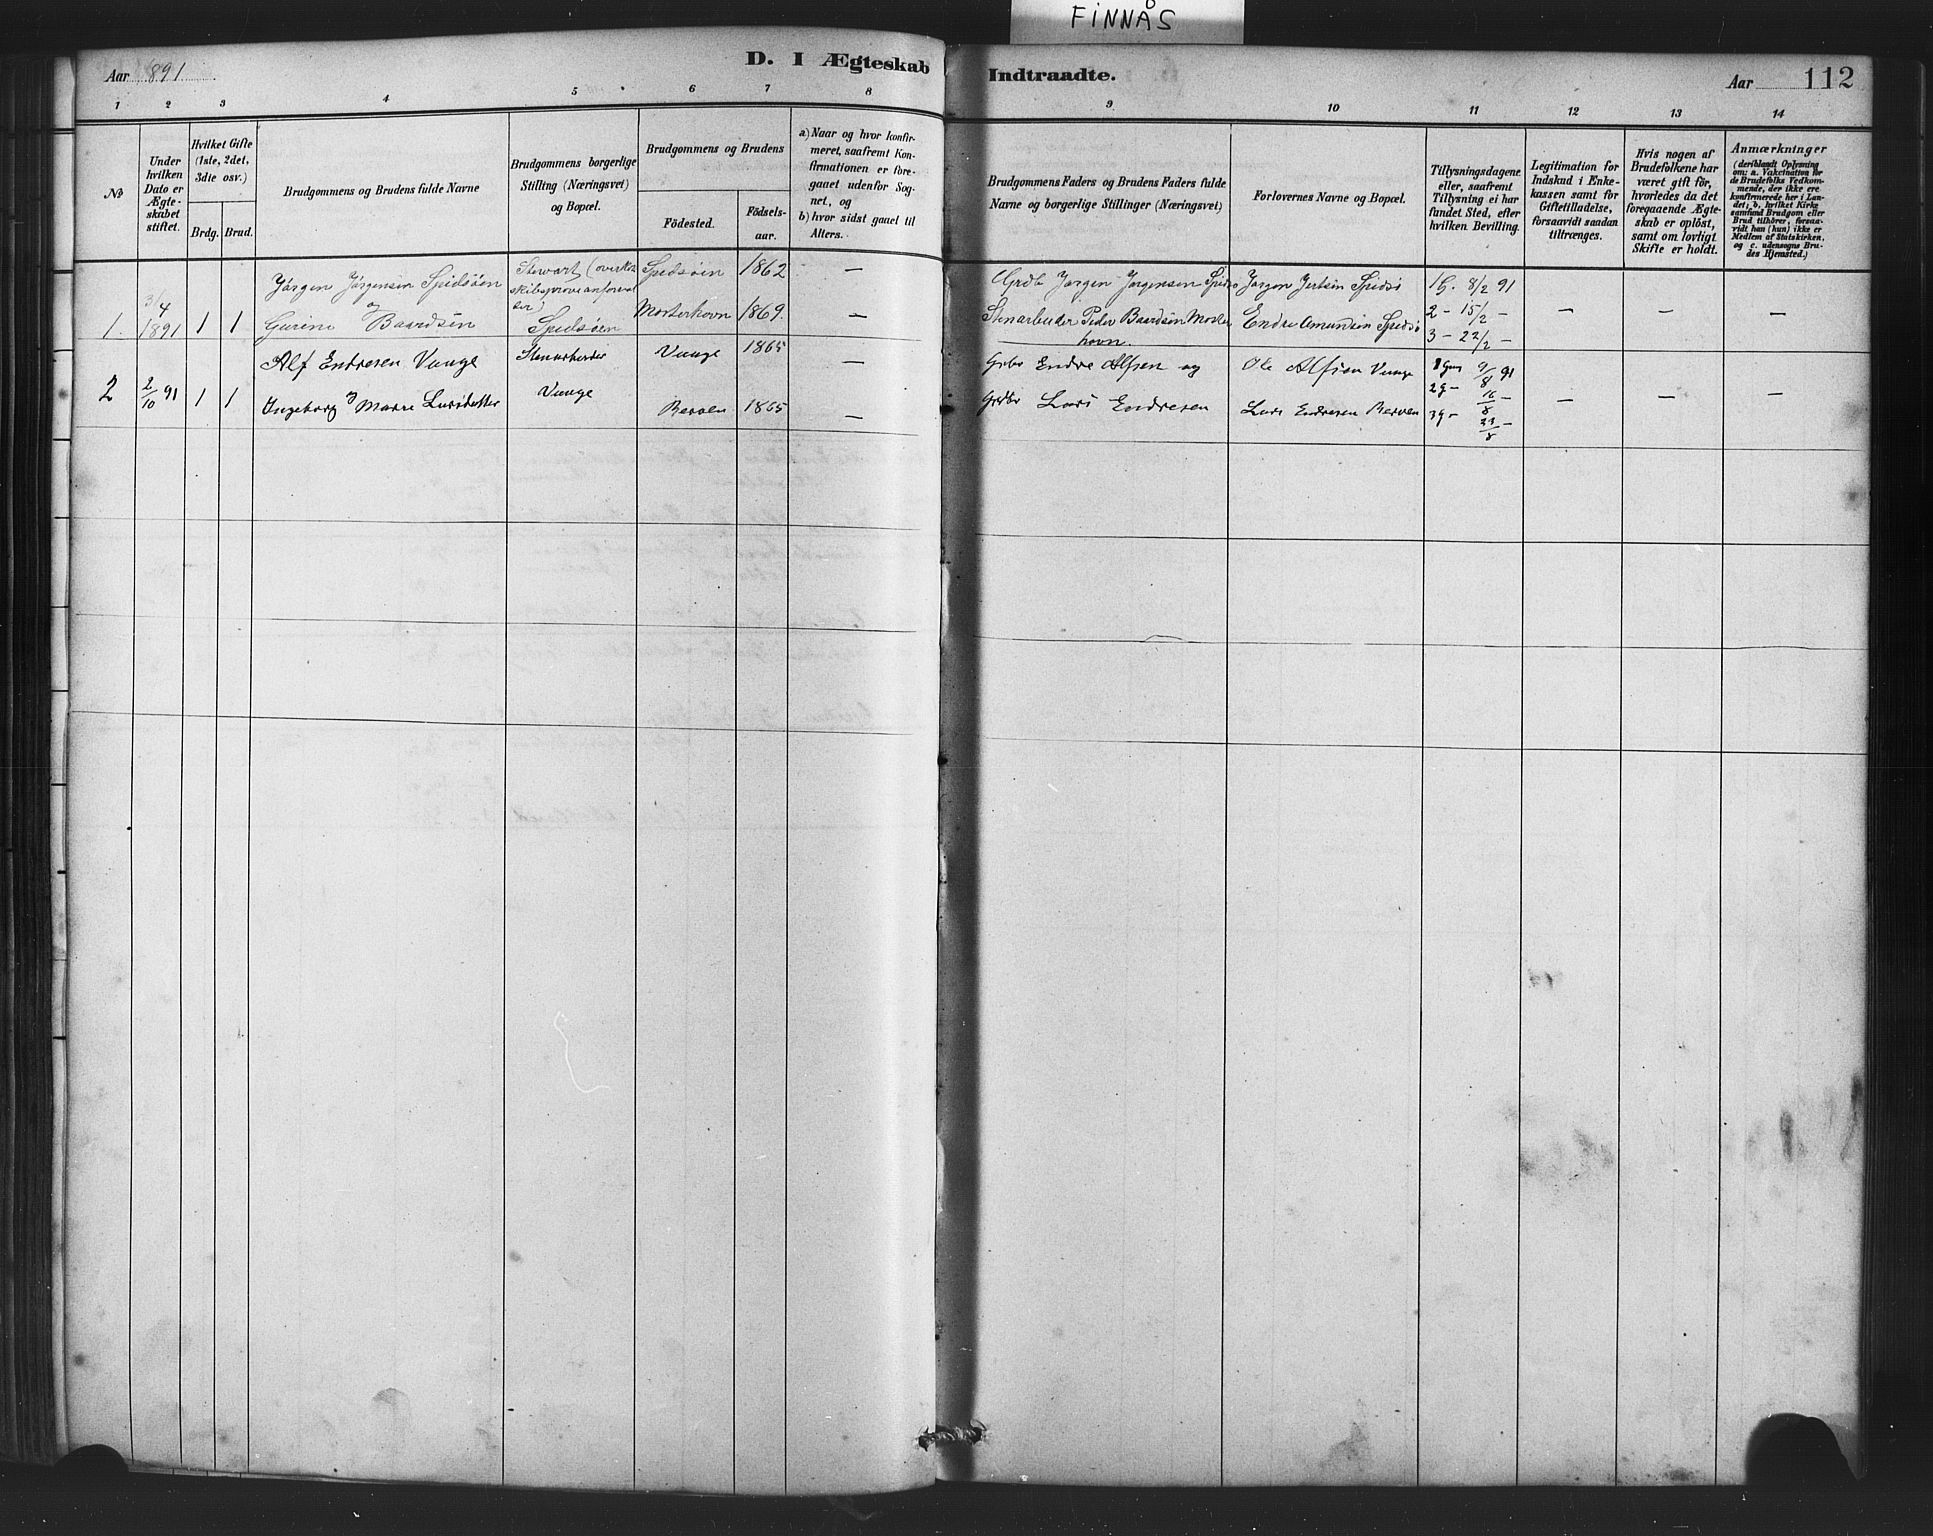 FINNÅS
Aar 891
D. I Ægteskab
Indtraadte.
Aar
112
1 2 3 4 5 6 7 8
9 10 11 12 13 14
No
Under hvilken Dato er Ægteskabet stiftet.
Hvilket Gifte (1ste, 2det, 3die osv.)
Brdg. Brud.
Brudgommens og Brudens fulde Navne
Brudgommens borgerlige Stilling (Næringsvei) og Bopæl.
Brudgommens og Brudens
Födested.
Födselsaar.
a) Naar og hvor konfirmeret, saafremt Konfirmationen er foregaaet udenfor Sognet, og
b) hvor sidst gaaet til Alters.
Brudgommens Faders og Brudens Faders fulde Navne og borgerlige Stillinger (Næringsvei)
Forlovernes Navne og Bopæl.
Tillysningsdagene eller, saafremt Tillysning ei har fundet Sted, efter hvilken Bevilling.
Legitimation for Indskud i Enkekassen samt for Giftetilladelse, forsaavidt saadan tiltrænges.
Hvis nogen af Brudefolkene har været gift för, hvorledes da det foregaaende Ægteskab er oplöst, samt om lovligt Skifte er holdt.
Anmærkninger
(deriblandt Oplysning om: a. Vakcination for de Brudefolks Vedkommende, der ikke ere konfirmerede her i Landet; b. hvilket Kirkesamfund Brudgom eller Brud tilhörer, forsaavidt han (hun) ikke er Medlem af Statskirken, og c. udensogns Brudes Hjemsted.)
1. 3/4 1891 1 1
Jørgen Jørgensen Spidsøen
og
Gurine Baardsen
Stewart (overko
skibsprovianforval
ter)
Spidsøen
Spidsøen 1862 —
Mosterhavn 1869. —
Grdb Jørgen Jørgensen Spidsø
Stenarbeider Peder Baardsen Moster
havn.
Jørgen Spidsø
Endre Amundsen Spidsø
1G. 8/2 91
2 - 15/2 -
3 - 22/2 -
— — —
2 2/10 91 1 1
Alf Endresen Vaage
og
Ingeborg Marie Larsdatter
Stenarbeider
Vaage
Vaage 1865 —
Berven 1865 —
Grbr Endre Alfsen og
Grdbr Lars Endresen
Ole Alfsen Vaage
Lars Endresen Berven
1 Gang 9/8 91
2g - 16/8 -
3g - 23/8 -
— — —